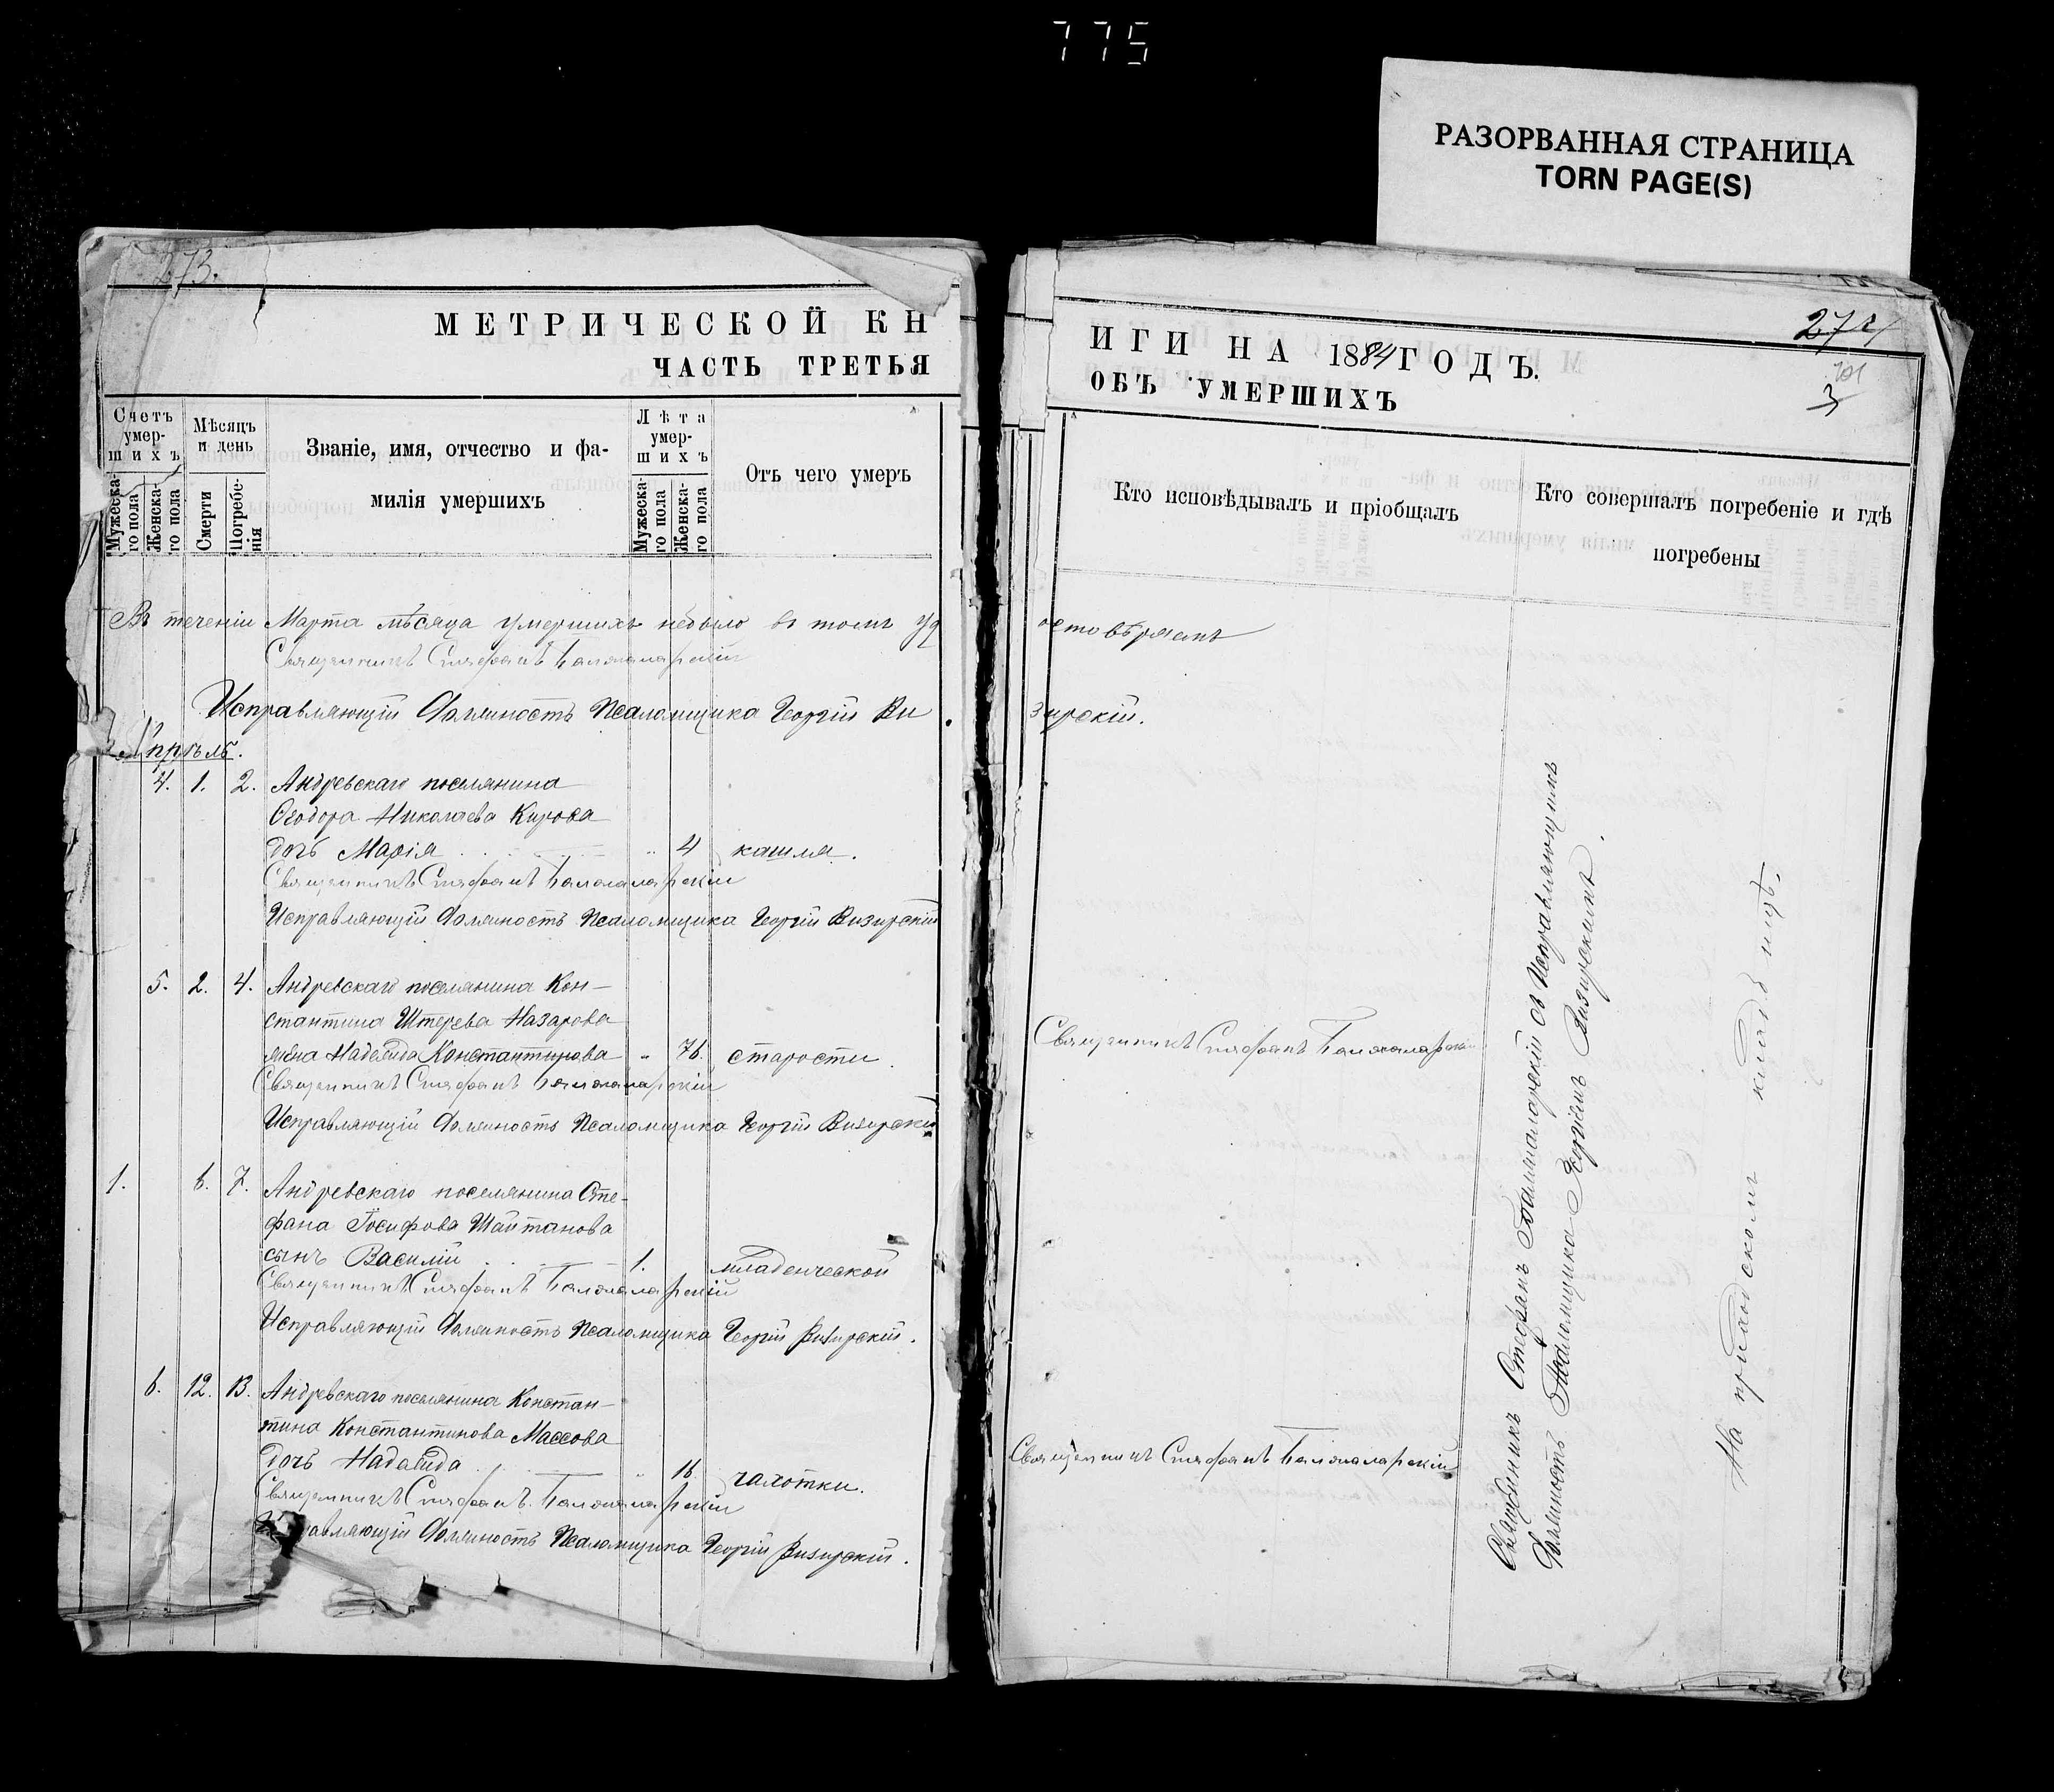 775
РАЗОРВАННАЯ СТРАНИЦА
TORN PAGE(S)
273.
МЕТРИЧЕСКОЙ КН
ЧАСТЬ ТРЕТЬЯ
Счетъ умершихъ
Мужеска-го пола
Женска-го пола
Мѣсяцъ и день
Смерти
Погребе-нія
Званіе, имя, отчество и фа-
милія умершихъ
Лѣта умершихъ
Мужеска-го пола
Женска-го пола
Отъ чего умеръ
Въ теченіи Марта мѣсяца умершихъ небыло въ томъ уд
Священникъ Стефанъ
Исправляющій Должность Псаломщика Георгій Ви
Апрѣль.
4. 1. 2. Андревскаго поселянина
Ѳеодора Николаева Кирова
дочь Марія 4 кашля.
Священникъ Стефанъ
Исправляющій Должность Псаломщика Георгій Визирскій
5. 2. 4. Андревскаго поселянина Кон-
стантина Штерева Назарова
жена Надежда Константинова „ 76. старости.
Священникъ Стефанъ
Исправляющій Должность Псаломщика Георгій Визирскій
1. 6. 7. Андревскаго поселянина Сте-
фана Іосифова Шайтанова
сынъ Василій 1. младенческой
Священникъ Стефанъ
Исправляющій Должность Псаломщика Георгій Визирскій.
6. 12. 13. Андревскаго поселянина Констан-
тина Константинова Массова
дочь Надежда „ 16 чахотки.
Священникъ Стефанъ
Исправляющій Должность Псаломщика Георгій Визирскій.
ИГИ НА 1884 ГОДЪ.
ОБЪ УМЕРШИХЪ
274
3
Кто исповѣдывалъ и пріобщалъ
Кто совершалъ погребеніе и гдѣ
погребены
остовѣряемъ
зирскій.
Священникъ Стефанъ
Священникъ Стефанъ
Священникъ Стефанъ съ Исправляющимъ
Должность Псаломщика Георгіемъ Визирскимъ.
На приходскомъ кладбищѣ.